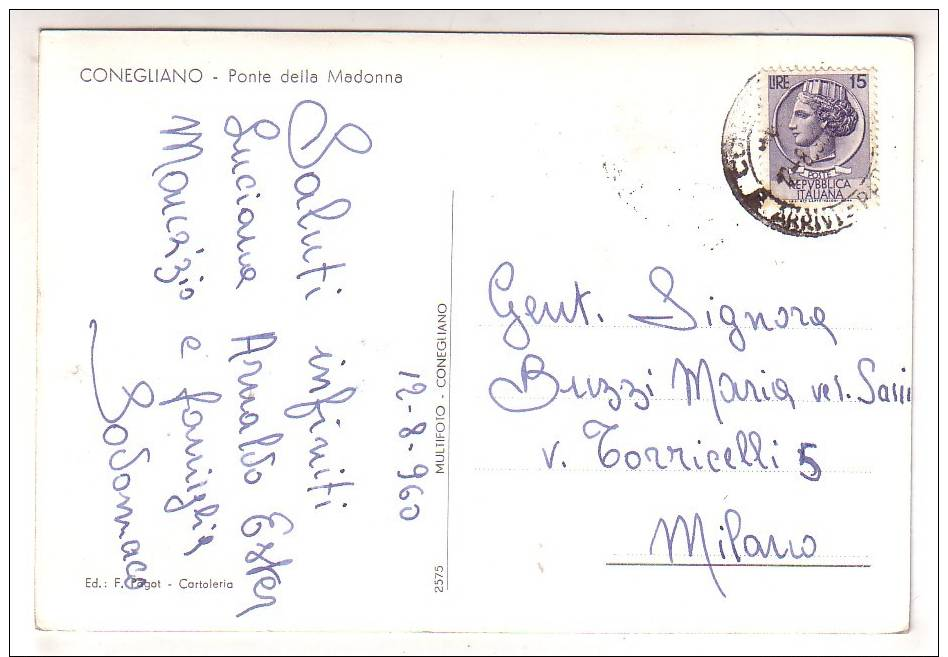 CONEGLIANO - Ponte della Madonna
Saluti infiniti
Luciana Arnaldo Ester
Maurizio e famiglia
Bodomaco
12-8-960
2575 MULTIFOTO - CONEGLIANO
Ed.: F. Pagot - Cartoleria
LIRE 15
POSTE
REPVBBLICA
ITALIANA
ARRIVI
Gent. Signora
Buzzi Maria ved. Sassi
v. Torricelli 5
Milano